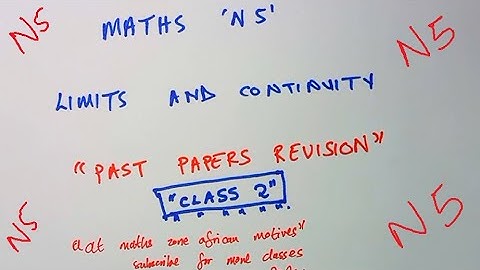 N5
MATHS 'N5'
N5
LIMITS AND CONTINUITY
"PAST PAPERS REVISION"
"CLASS 2"
N5
N5
"at maths zone african motives"
subscribe for more classes